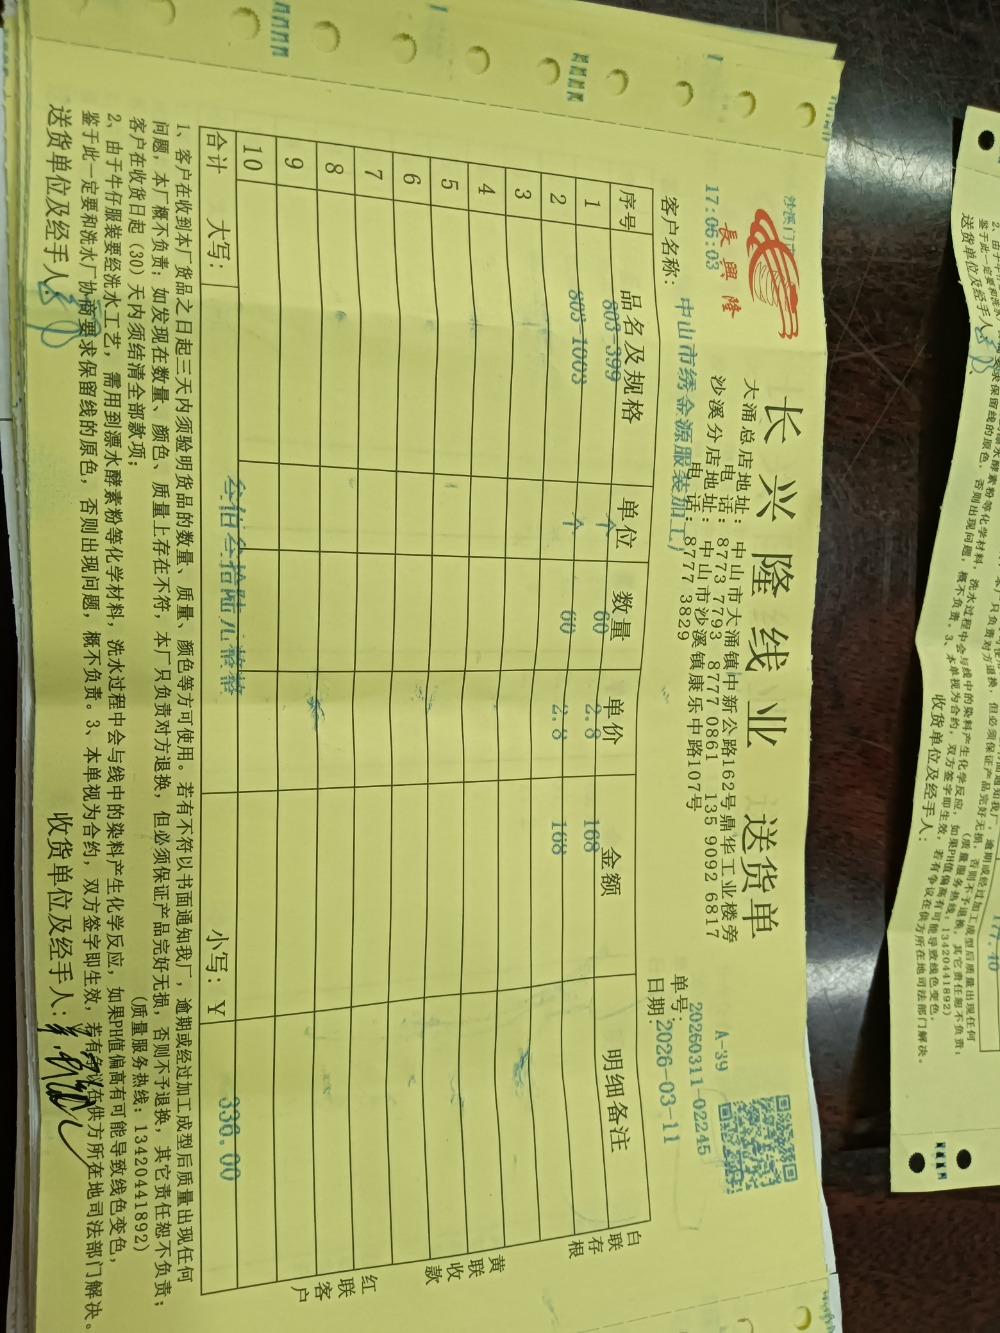 长兴隆线业 送货单
長興隆
沙溪门
17:06:03
大涌总店地址: 中山市大涌镇中新公路162号鼎华工业楼旁
电 话: 8773 7793 8777 0861 135 9092 6817
沙溪分店地址: 中山市沙溪镇康乐中路107号
电 话: 8777 3829
A-39
单号: 20260311-02245
客户名称: 中山市绣金源服装加工厂
日期: 2026-03-11
序号 品名及规格 单位 数量 单价 金额 明细备注
1 803-399 个 60 2.8 168
2 803-1003 个 60 2.8 168
3
4
5
6
7
8
9
10
合计 大写: 叁佰叁拾陆元整 小写: ¥ 336.00
白联存根
黄联收款
红联客户
1、客户在收到本厂货品之日起三天内须验明货品的数量、质量、颜色等方可使用。若有不符以书面通知我厂,逾期或经过加工成型后质量出现任何
问题,本厂概不负责;如发现在数量、颜色、质量上存在不符,本厂只负责对方退换,但必须保证产品完好无损,否则不予退换,其它责任恕不负责;
客户在收货日起(30)天内须结清全部款项; (质量服务热线:13420441892)
2、由于牛仔服装要经洗水工艺,需用到漂水酵素粉等化学材料,洗水过程中会与线中的染料产生化学反应,如果PH值偏高有可能导致线色变色,
鉴于此一定要和洗水厂协商要求保留线的原色,否则出现问题,概不负责。3、本单视为合约,双方签字即生效,若有争议在供方所在地司法部门解决。
送货单位及经手人: 收货单位及经手人:
177.40
(质量服务热线:13420441892)
送货单位及经手人: 收货单位及经手人: